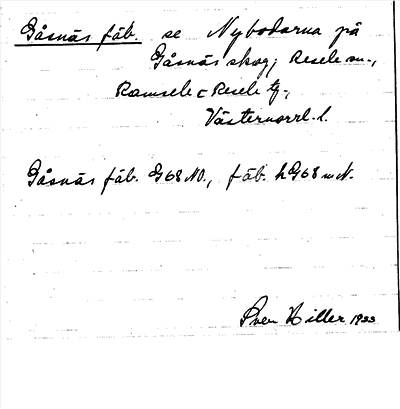 Gåsnäs fäb. se Nybodarna på
Gåsnäs skog, Resele sn.,
Ramsele o Resele tg.,
Västernorrl. l.
Gåsnäs fäb. G68 NO., fäb. h G68 m N.
Sven Hiller 1933